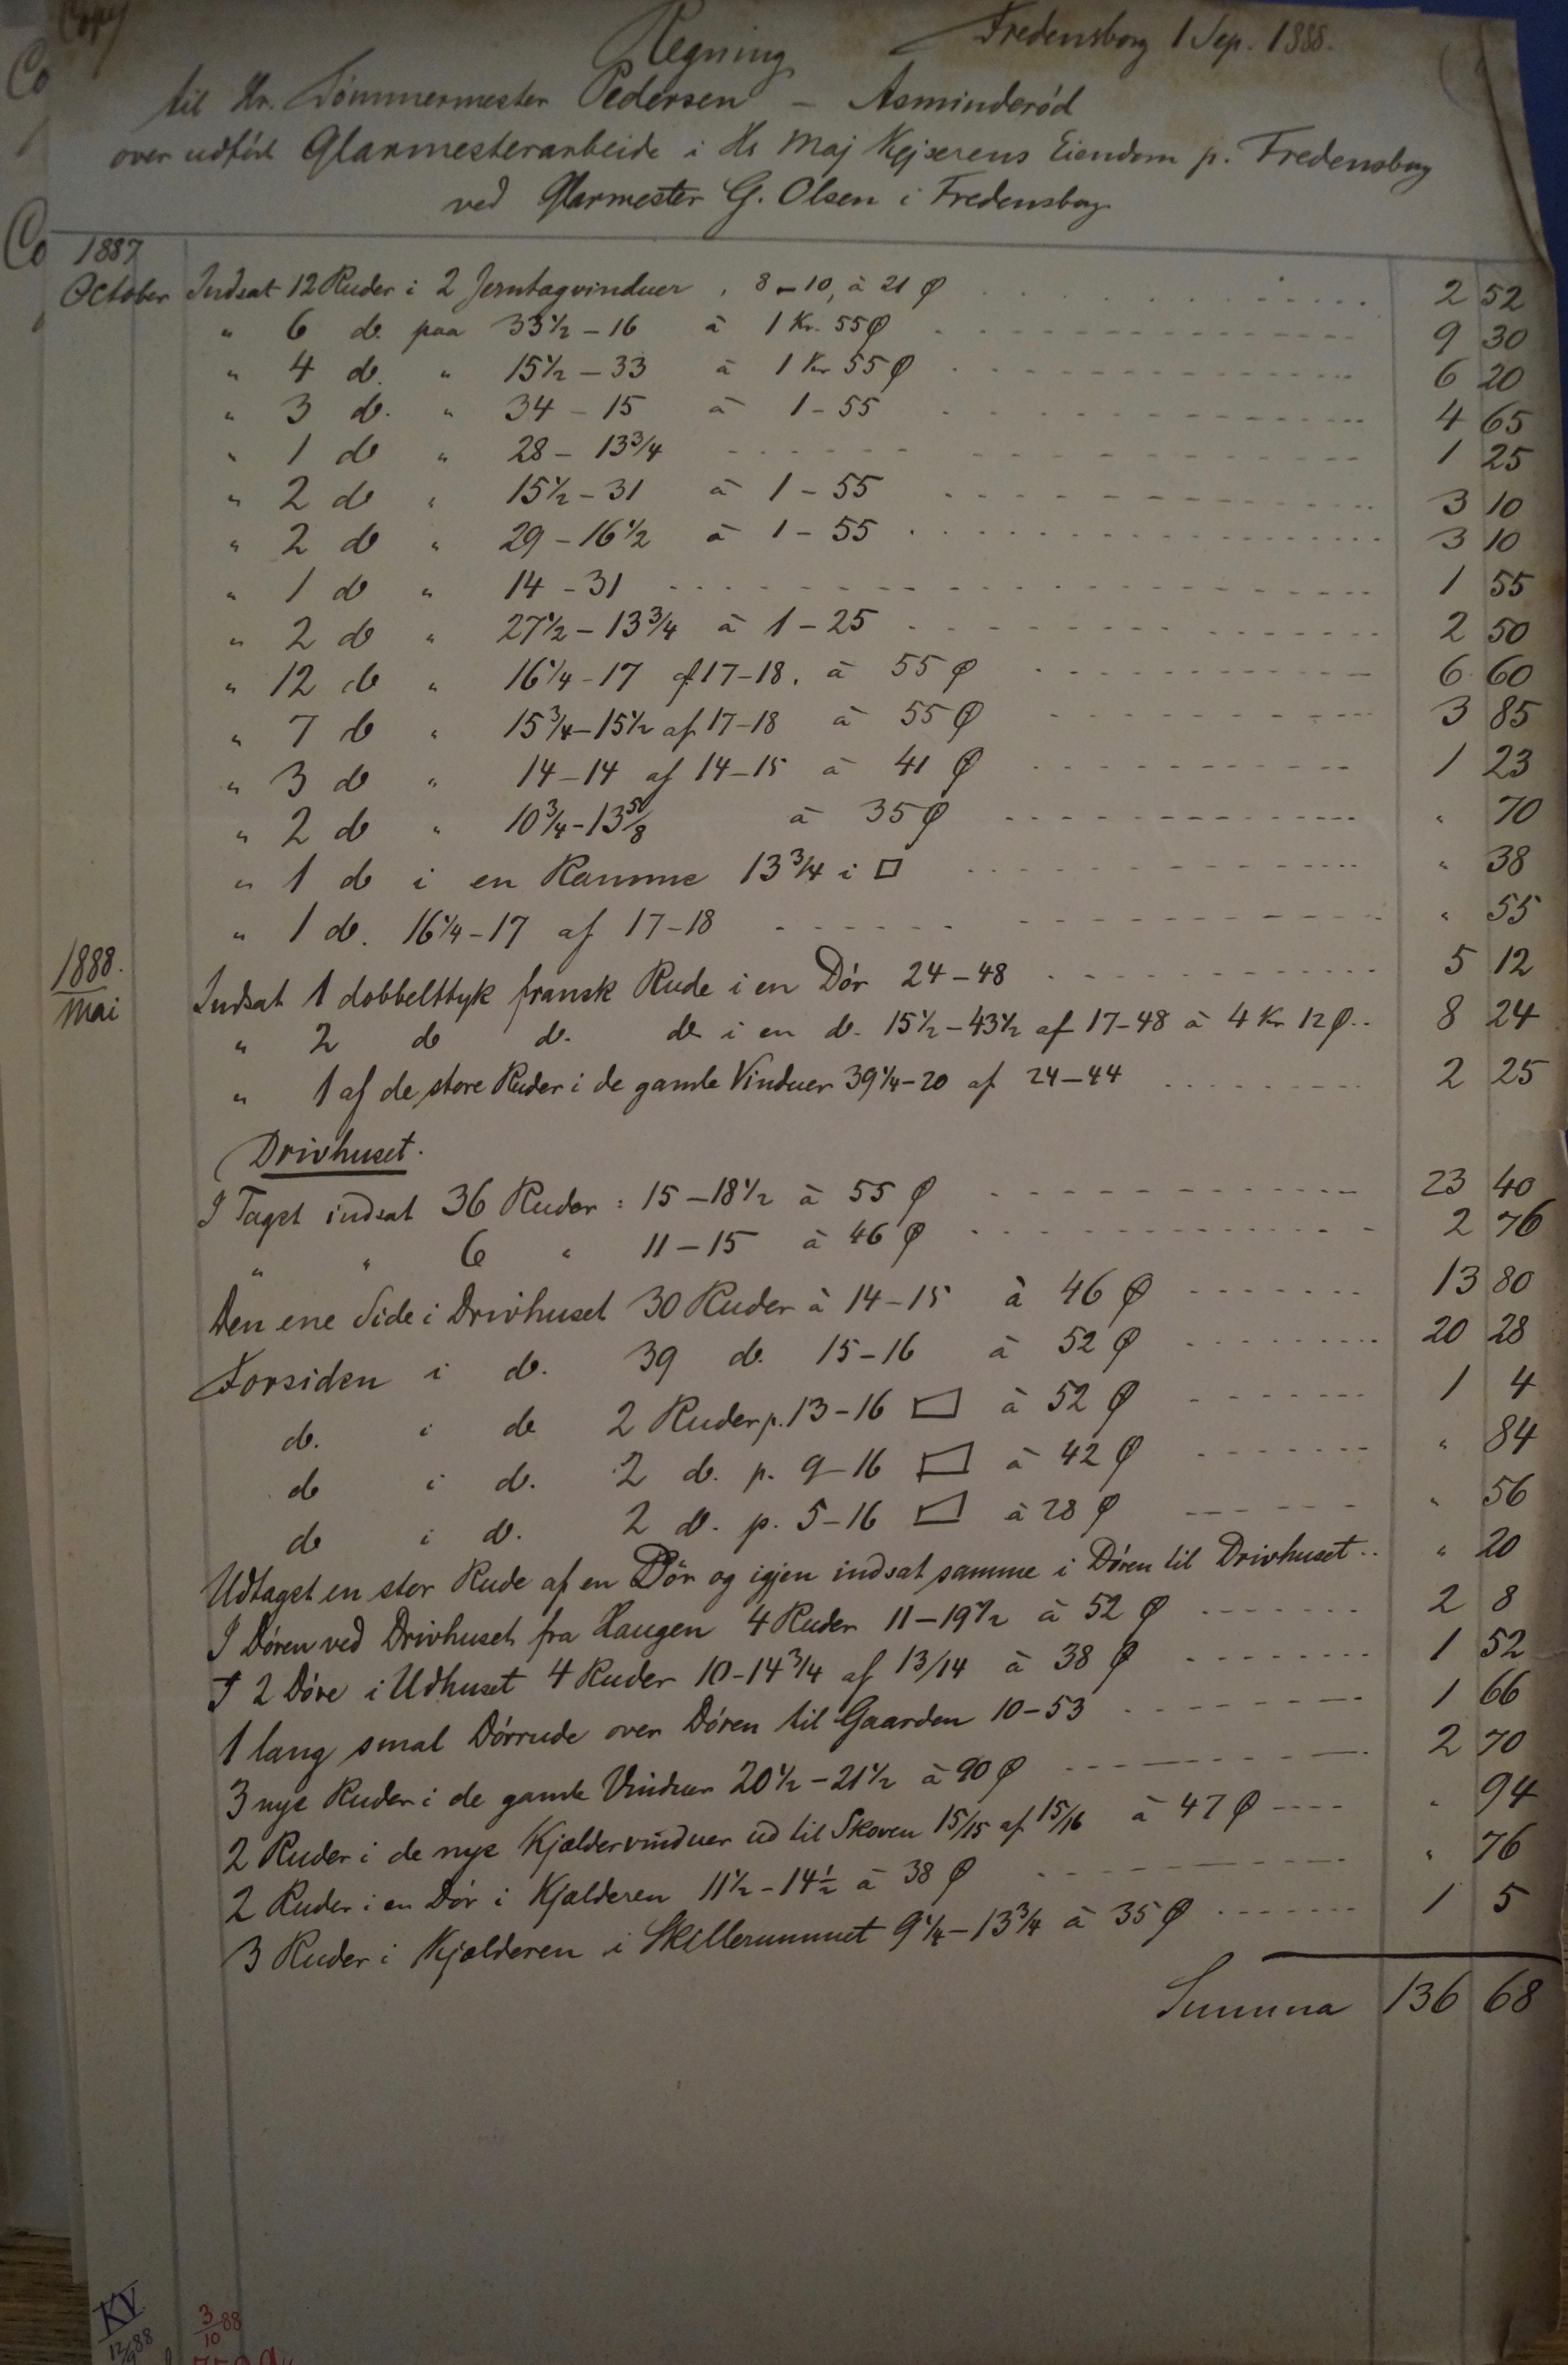 Copy
Fredensborg 1 Sep. 1888.
Regning
til Hr. Tömmermester Pedersen – Asminderöd
over udfört Glarmesterarbeide i Hs Maj Kejserens Eiendom p. Fredensborg
ved Glarmester G. Olsen i Fredensborg
Co
Co
1887
October Indsat 12 Ruder i 2 Jerntagvinduer, 8–10, à 21 Ø 2 52
" 6 do. paa 33½–16 à 1 Kr. 55 Ø 9 30
" 4 do. " 15½–33 à 1 Kr 55 Ø 6 20
" 3 do. " 34–15 à 1–55 4 65
" 1 do " 28–13¾ 1 25
" 2 do " 15½–31 à 1–55 3 10
" 2 do " 29–16½ à 1–55 3 10
" 1 do " 14–31 1 55
" 2 do " 27½–13¾ à 1–25 2 50
" 12 do " 16¼–17 af 17–18. à 55 Ø 6 60
" 7 do " 15¾–15½ af 17–18 à 55 Ø 3 85
" 3 do " 14–14 af 14–15 à 41 Ø 1 23
" 2 do " 10¾–13⅝ à 35 Ø " 70
" 1 do i en Ramme 13¾ i □ " 38
" 1 do. 16¼–17 af 17–18 " 55
1888.
Mai Indsat 1 dobbelttyk fransk Rude i en Dör 24–48 5 12
" 2 do do. do i en do. 15½–43½ af 17–48 à 4 Kr 12 Ø 8 24
" 1 af de store Ruder i de gamle Vinduer 39¼–20 af 24–44 2 25
Drivhuset.
I Taget indsat 36 Ruder : 15–18½ à 55 Ø 23 40
" " 6 " 11–15 à 46 Ø 2 76
Den ene Side i Drivhuset 30 Ruder à 14–15 à 46 Ø 13 80
Forsiden i do. 39 do. 15–16 à 52 Ø 20 28
do. i do 2 Ruder p. 13–16 à 52 Ø 1 4
do i do. 2 do. p. 9–16 à 42 Ø " 84
do i do. 2 do. p. 5–16 à 28 Ø " 56
Udtaget en stor Rude af en Dör og igjen indsat samme i Dören til Drivhuset " 20
I Dören ved Drivhuset fra Haugen 4 Ruder 11–19½ à 52 Ø 2 8
I 2 Döre i Udhuset 4 Ruder 10–14¾ af 13/14 à 38 Ø 1 52
1 lang smal Dörrude over Dören til Gaarden 10–53 1 66
3 nye Ruder i de gamle Vinduer 20½–21½ à 90 Ø 2 70
2 Ruder i de nye Kjældervinduer ud til Skoven 15/15 af 15/16 à 47 Ø " 94
2 Ruder i en Dör i Kjælderen 11½–14½ à 38 Ø " 76
3 Ruder i Kjælderen i Skillerummet 9¼–13¾ à 35 Ø 1 5
Summa 136 68
KV
12/9 88
3/10 88